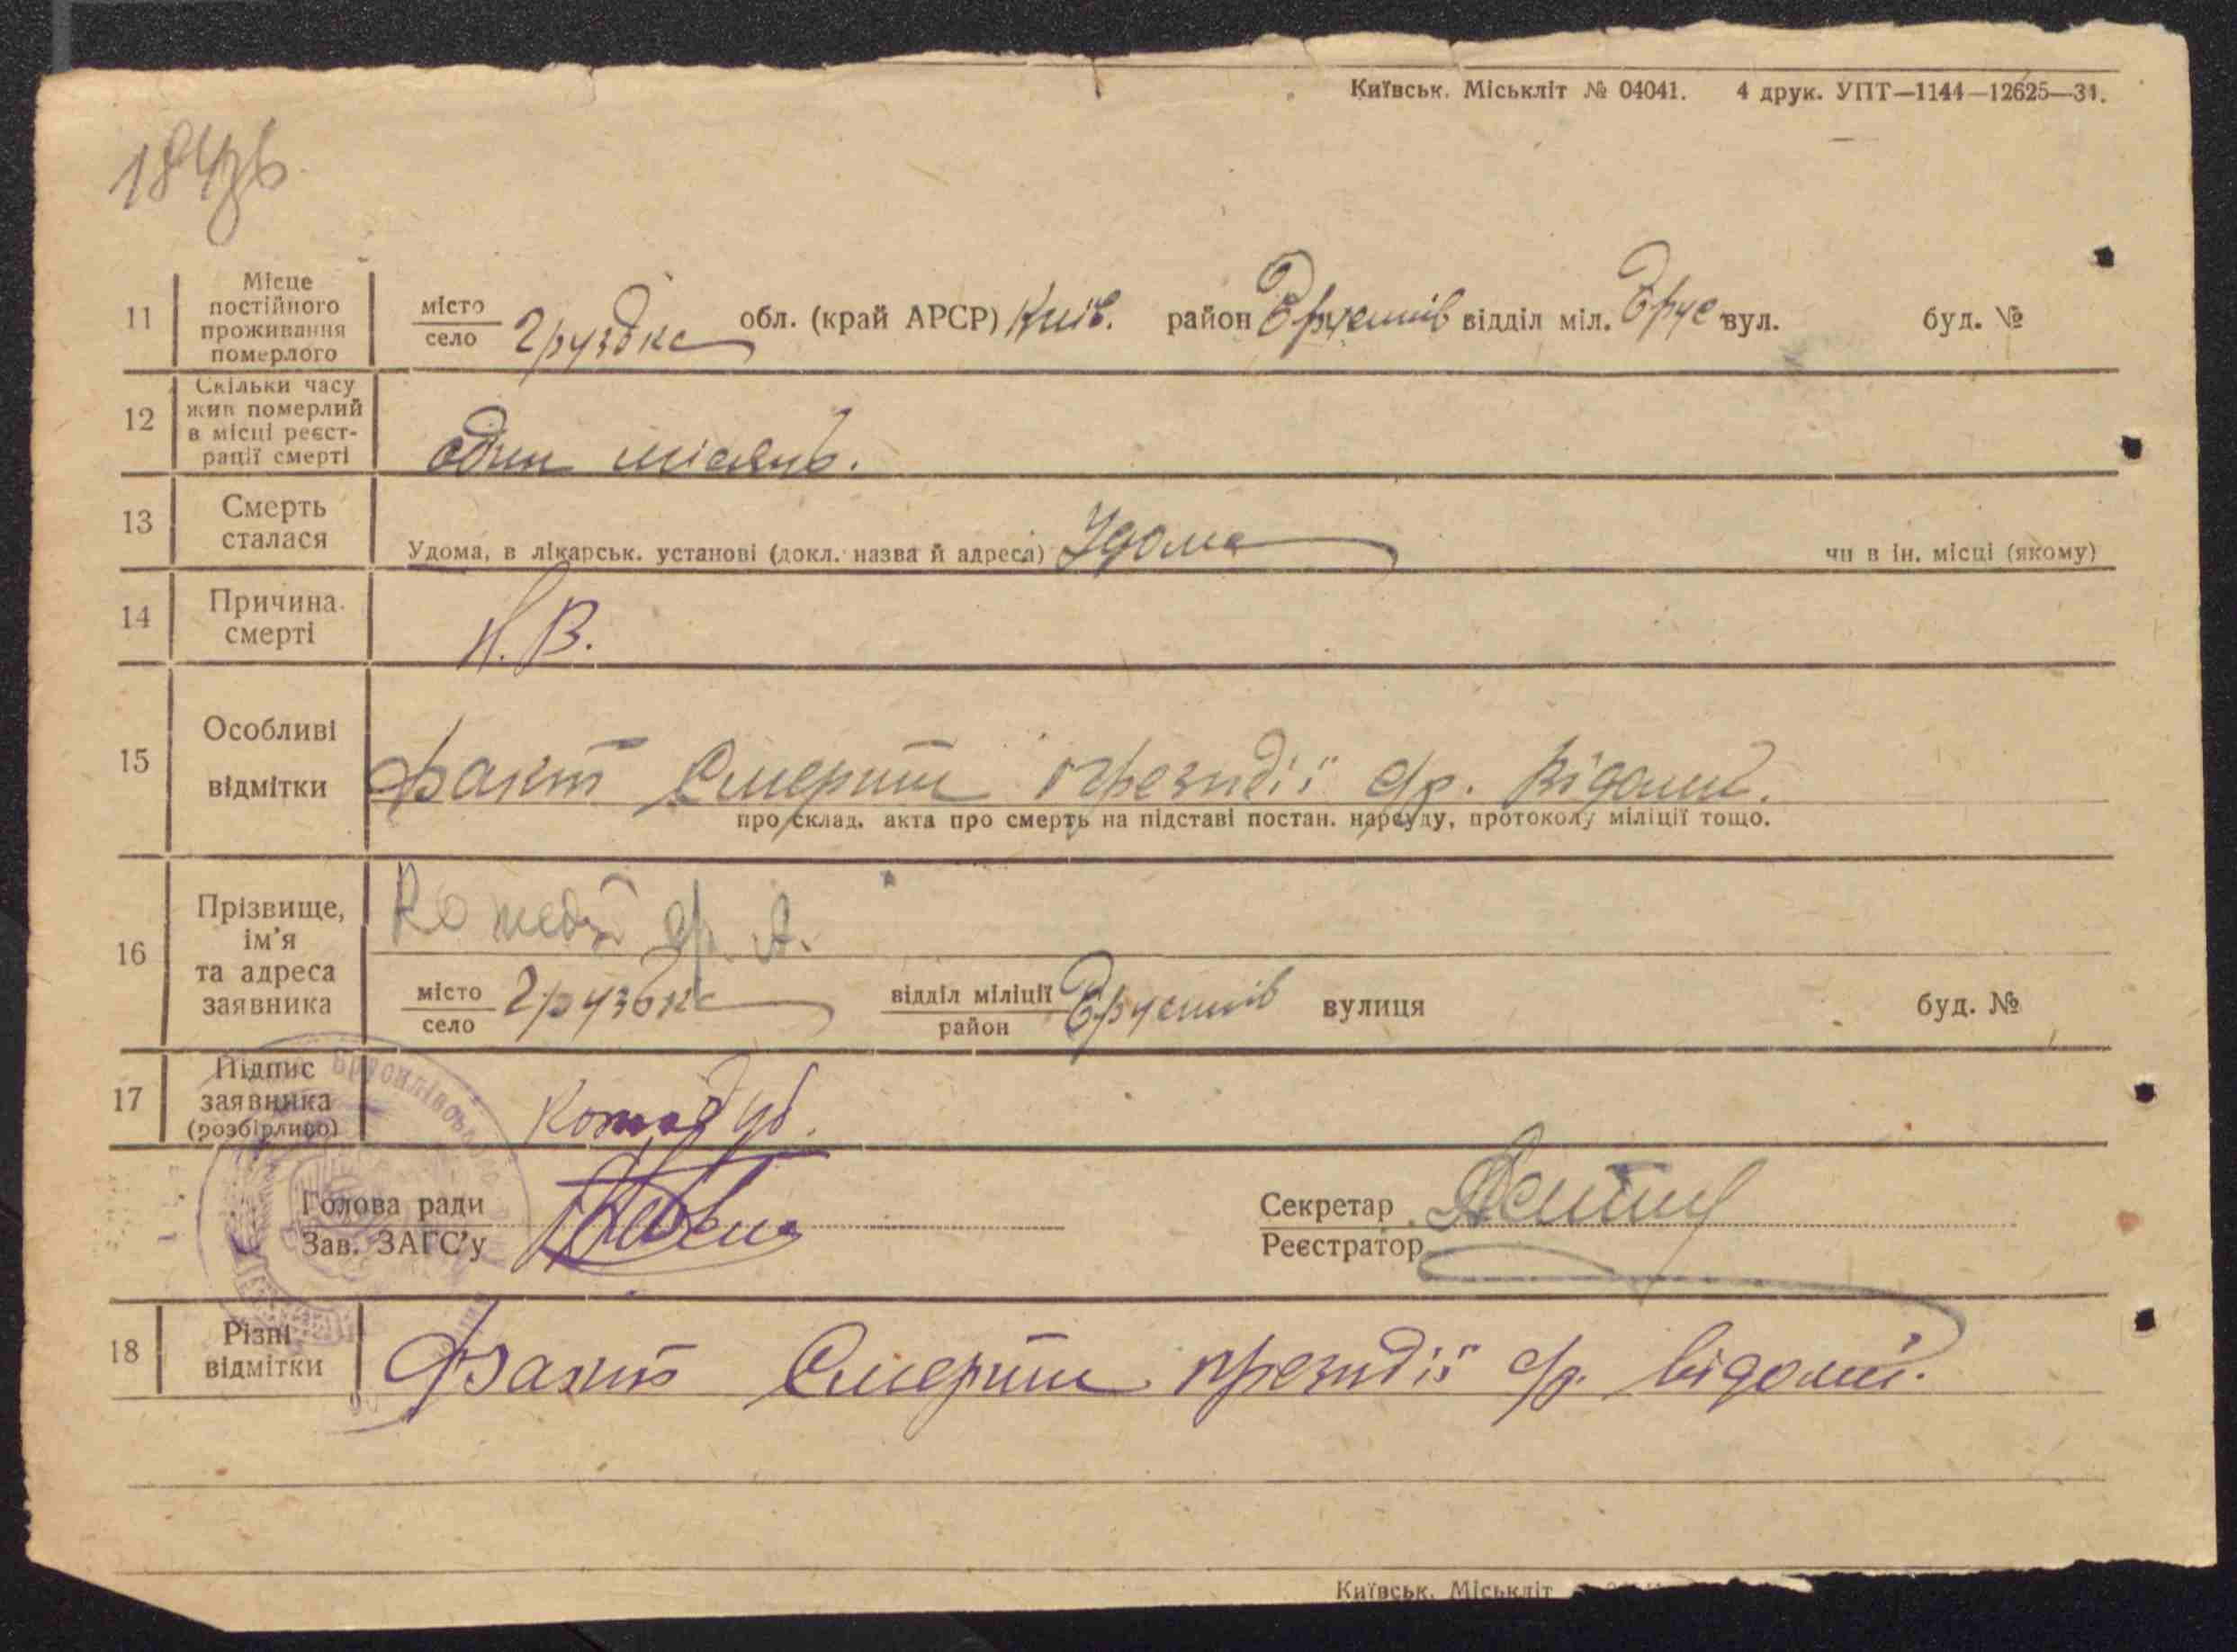 Київськ. Міськліт № 04041. 4 друк. УПТ—1144—12625—31.
11
Місце
постійного
проживання
померлого
місто
село
Груздка
обл. (край АРСР) Київ.
район
відділ міл. Брус вул.
буд. №
12
Скільки часу
жив померлий
в місці реєст-
рації смерті
один місяць.
13
Смерть
сталася
Удома, в лікарськ. установі (докл. назва й адреса) Удома
чи в ін. місці (якому)
14
Причина
смерті
Н. В.
15
Особливі
відмітки
Факт Смерти президії с/р. відомий.
про склад. акта про смерть на підставі постан. нарсуду, протоколу міліції тощо.
16
Прізвище,
ім'я
та адреса
заявника
місто
село
Груздка
відділ міліції
район
вулиця
буд. №
17
Підпис
заявника
(розбірливо)
Голова ради
Зав. ЗАГС'у
Секретар
Реєстратор
18
Різні
відмітки
Факт Смерти президії с/р. відомий.
Київськ. Міськліт